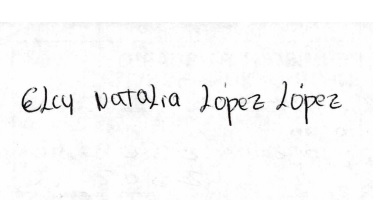 Elcy Natalia López López